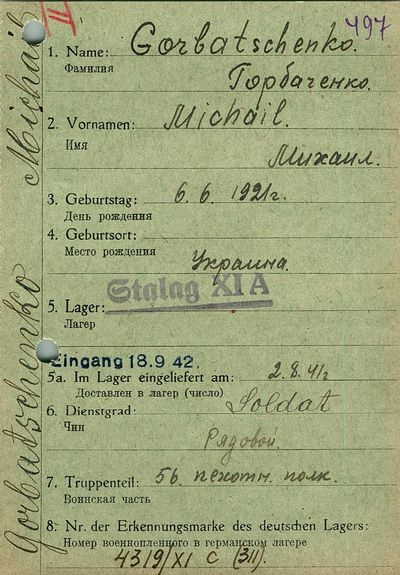 II
497
Gorbatschenko Michail
1. Name: Gorbatschenko.
Фамилия
Горбаченко.
2. Vornamen: Michail.
Имя
Михаил.
3. Geburtstag: 6. 6. 1921г.
День рождения
4. Geburtsort:
Место рождения
Украина.
Stalag XI A
5. Lager:
Лагер
Eingang 18. 9. 42.
5a. Im Lager eingeliefert am: 2. 8. 41г
Доставлен в лагер (число)
6. Dienstgrad: Soldat
Чин
Рядовой.
7. Truppenteil: 56. пехотн. полк.
Воинская часть
8: Nr. der Erkennungsmarke des deutschen Lagers:
Номер военнопленного в германском лагере
4319/XI C (311).